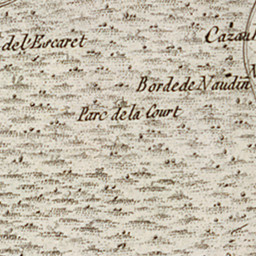 del'Escaret
Cazau
Bordede Naudin
Parc dela Court